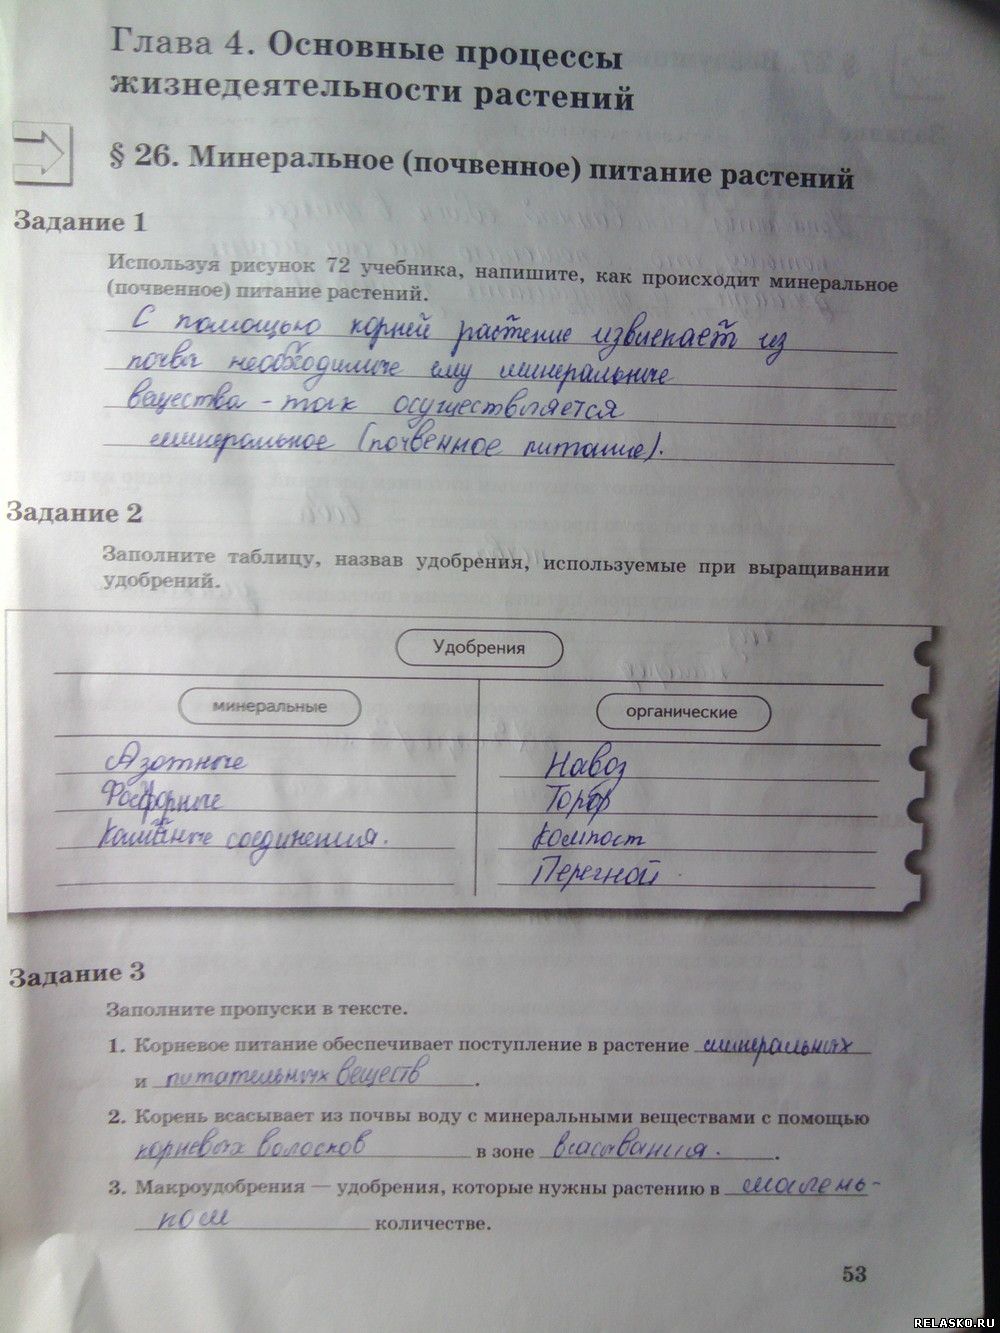 Глава 4. Основные процессы
жизнедеятельности растений
§ 26. Минеральное (почвенное) питание растений
Задание 1
Используя рисунок 72 учебника, напишите, как происходит минеральное
(почвенное) питание растений.
С помощью корней растение извлекает из
почвы необходимые ему минеральные
вещества - так осуществляется
минеральное (почвенное питание).
Задание 2
Заполните таблицу, назвав удобрения, используемые при выращивании
удобрений.
Удобрения
минеральные
органические
Азотные
Навоз
Фосфорные
Торф
Калийные соединения.
Компост
Перегной
Задание 3
Заполните пропуски в тексте.
1. Корневое питание обеспечивает поступление в растение минеральных
и питательных веществ .
2. Корень всасывает из почвы воду с минеральными веществами с помощью
корневых волосков в зоне всасывания. .
3. Макроудобрения — удобрения, которые нужны растению в малень-
ком количестве.
53
RELASKO.RU